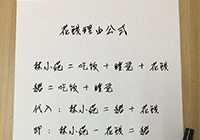 花钱理由公式
林小苑=吃饭+睡觉+花钱
猪=吃饭+睡觉
代入：林小苑=猪+花钱
即：林小苑-花钱=猪